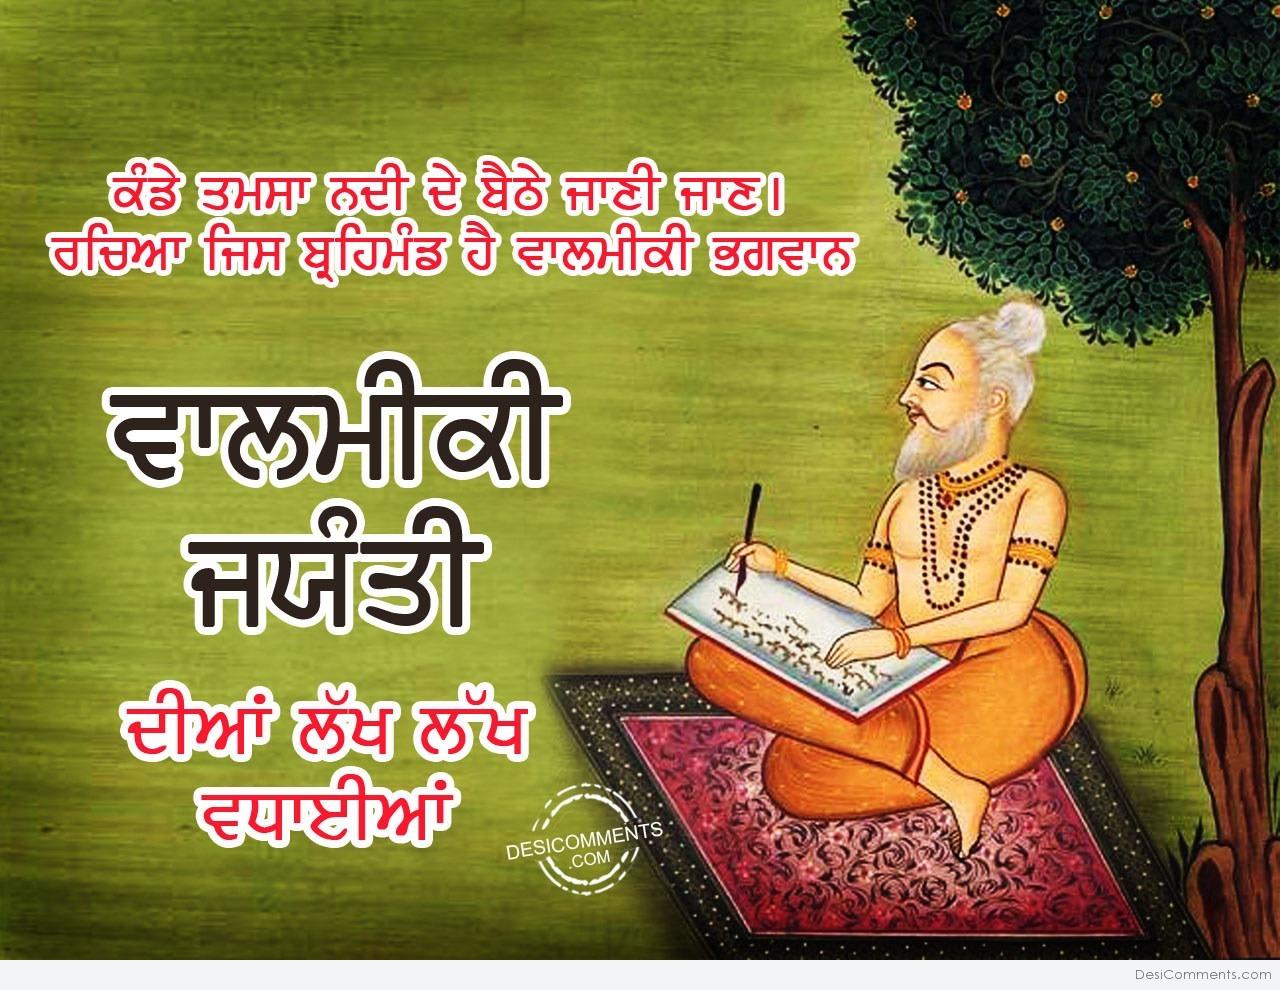 ਕੰਡੇ ਤਮਸਾ ਨਦੀ ਦੇ ਬੈਠੇ ਜਾਣੀ ਜਾਣ।
ਰਚਿਆ ਜਿਸ ਬ੍ਰਹਿਮੰਡ ਹੈ ਵਾਲਮੀਕੀ ਭਗਵਾਨ
ਵਾਲਮੀਕੀ
ਜਯੰਤੀ
ਦੀਆਂ ਲੱਖ ਲੱਖ
ਵਧਾਈਆਂ
DESICOMMENTS
.COM
DesiComments.com